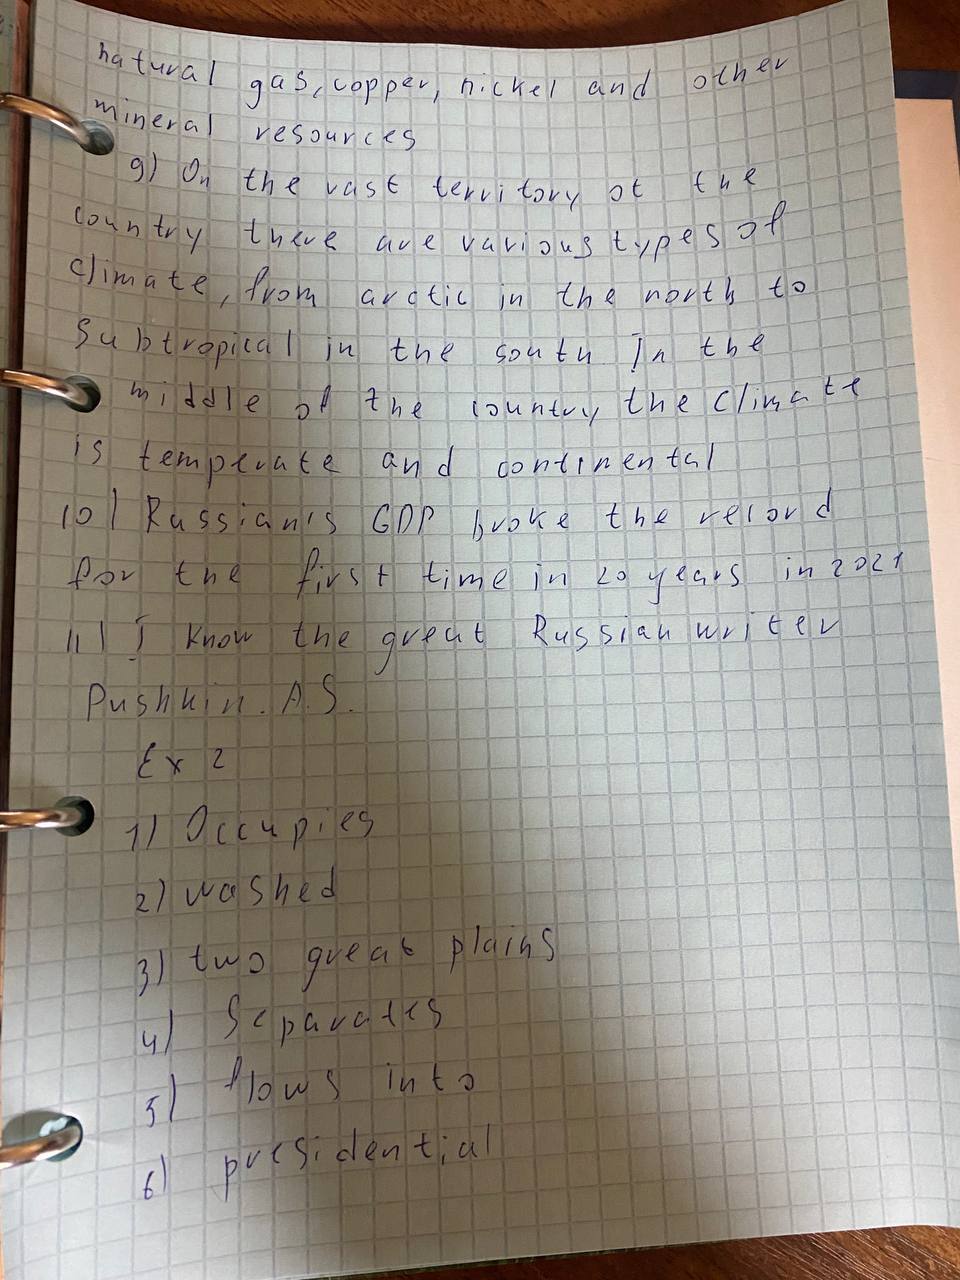 natural gas, copper, nickel and other
mineral resources
9) On the vast territory ot the
country there are various types of
climate, from arctic in the north to
subtropical in the south In the
middle of the country the climate
is temperate and continental
10) Russian's GDP broke the record
for the first time in 20 years in 2021
11) I know the great Russian writer
Pushkin. A.S.
Ex 2
1) Occupies
2) washed
3) two great plains
4) Separates
5) flows into
6) presidential